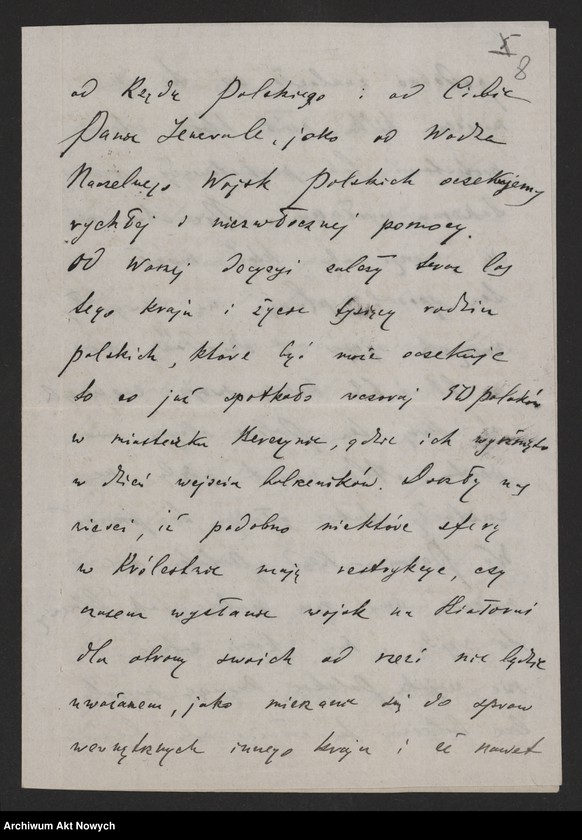 X
8
od Rządu Polskiego i od Ciebie
Panie Jenerale, jako od Wodza
Naczelnego Wojsk Polskich oczekujemy
rychłej i niezwłocznej pomocy.
Od Waszej decyzyi zależy teraz los
tego kraju i życie tysięcy rodzin
polskich, które być może oczekuje
to co już spotkało wczoraj 50 polaków
w miasteczku Berezynie, gdzie ich wyrżnięto
w dzień wejścia bolszewików. Doszły nas
wieści, iż podobno niektóre sfery
w Królestwie mają restrykcye, czy
czasem wysłanie wojsk na Białoruś
dla obrony swoich od rzezi nie będzie
uważanem, jako mieszanie się do spraw
wewnętrznych innego kraju i że nawet
Archiwum Akt Nowych